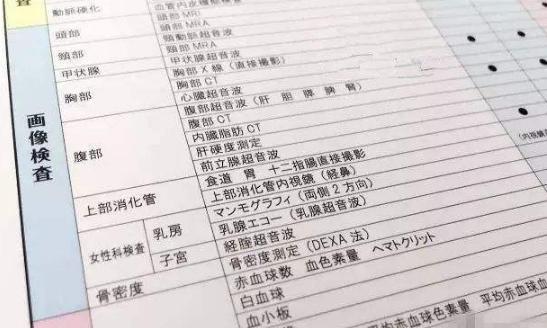 査
動脈硬化
血管内皮機能検査
頭部
頭部 MRI
頭部 MRA
頸部
頸動脈超音波
頸部 MRA
甲状腺
甲状腺超音波
胸部
胸部 X 線（直接撮影）
胸部 CT
心臓超音波
画像検査
腹部
腹部超音波（肝 胆 膵 脾 腎）
腹部 CT
内臓脂肪 CT
肝硬度測定
前立腺超音波
上部消化管
食道 胃 十二指腸直接撮影
上部消化管内視鏡（経鼻）
女性科検査
乳房
マンモグラフィ（両側 2 方向）
乳腺エコー（乳腺超音波）
子宮
経腟超音波
骨密度
骨密度測定（DEXA 法）
赤血球数 血色素量 ヘマトクリット
白血球
血小板
平均赤血球血色素量 平均赤血球血
(内視鏡